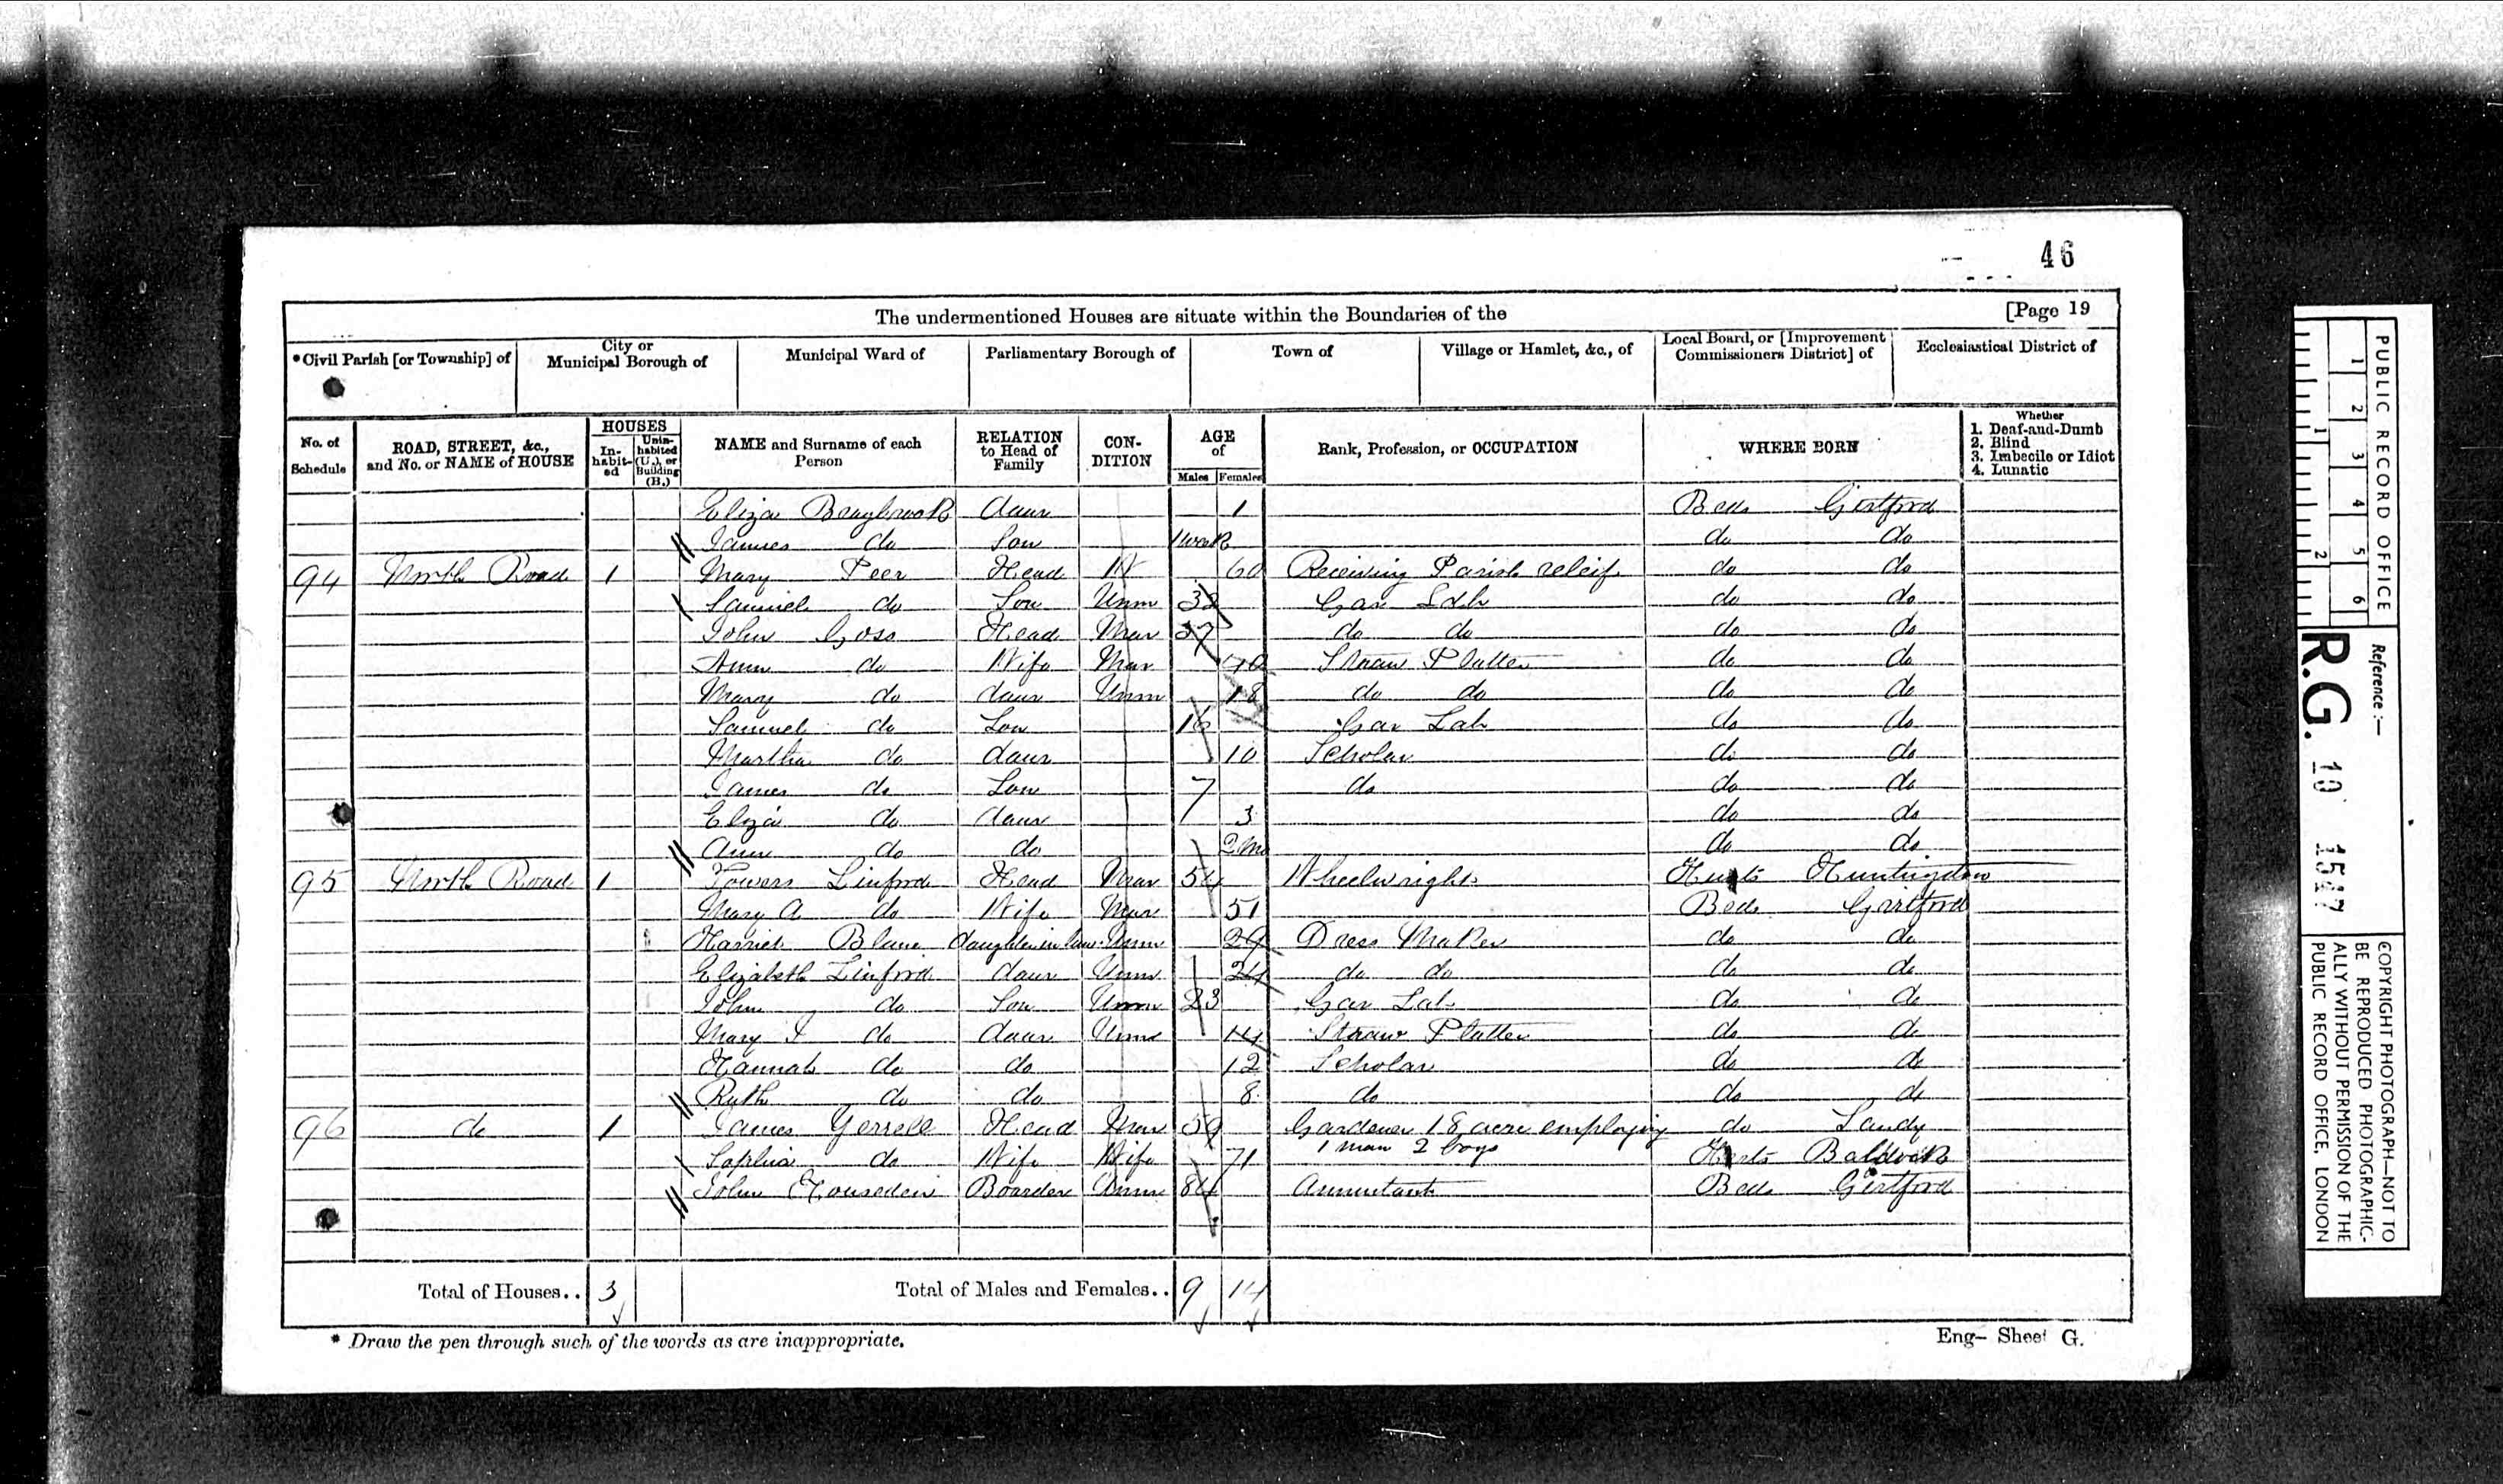 46
The undermentioned Houses are situate within the Boundaries of the [Page 19
*Civil Parish [or Township] of City or Municipal Borough of Municipal Ward of Parliamentary Borough of Town of Village or Hamlet, &c., of Local Board, or [Improvement Commissioners District] of Ecclesiastical District of
No. of Schedule ROAD, STREET, &c., and No. or NAME of HOUSE HOUSES In-habit-ed Unin-habited (U.), or Building (B.) NAME and Surname of each Person RELATION to Head of Family CON-DITION AGE of Males Females Rank, Profession, or OCCUPATION WHERE BORN Whether 1. Deaf-and-Dumb 2. Blind 3. Imbecile or Idiot 4. Lunatic
Eliza Braybrook daur 1 Beds Girtford
James do Son 1 week do do
94 North Road 1 Mary Peer Head W 60 Receiving Parish releif do do
Samuel do Son Unm 32 Gar Lab do do
John Goss Head Mar 37 do do do do
Ann do Wife Mar 40 Straw Platter do do
Mary do daur Unm 18 do do do do
Samuel do Son 16 Gar Lab do do
Martha do daur 10 Scholar do do
James do Son 7 do do do
Eliza do daur 3 do do
Ann do do 2 m do do
95 North Road 1 Towers Linford Head Mar 54 Wheelwright Hunts Huntingdon
Mary A do Wife Mar 51 Beds Girtford
Harriet daughter in law Unm 29 Dress Maker do do
Elizabeth Linford daur Unm 24 do do do do
John do Son Unm 23 Gar Lab do do
Mary do daur Unm 14 Straw Platter do do
Hannah do do 12 Scholar do do
Ruth do do 8 do do do
96 do 1 James Yerrell Head Mar 59 Gardener 18 acre employing 1 man 2 boys do Sandy
Sophia do Wife Wife 71 Herts Baldock
John Houseden Boarder Unm 84 Annuitant Beds Girtford
Total of Houses.. 3 Total of Males and Females.. 9 14
* Draw the pen through such of the words as are inappropriate. Eng- Sheet G.
PUBLIC RECORD OFFICE
1 2 3 4 5 6
1 2
Reference :-
R.G. 10 1547
COPYRIGHT PHOTOGRAPH—NOT TO
BE REPRODUCED PHOTOGRAPHIC-
ALLY WITHOUT PERMISSION OF THE
PUBLIC RECORD OFFICE, LONDON